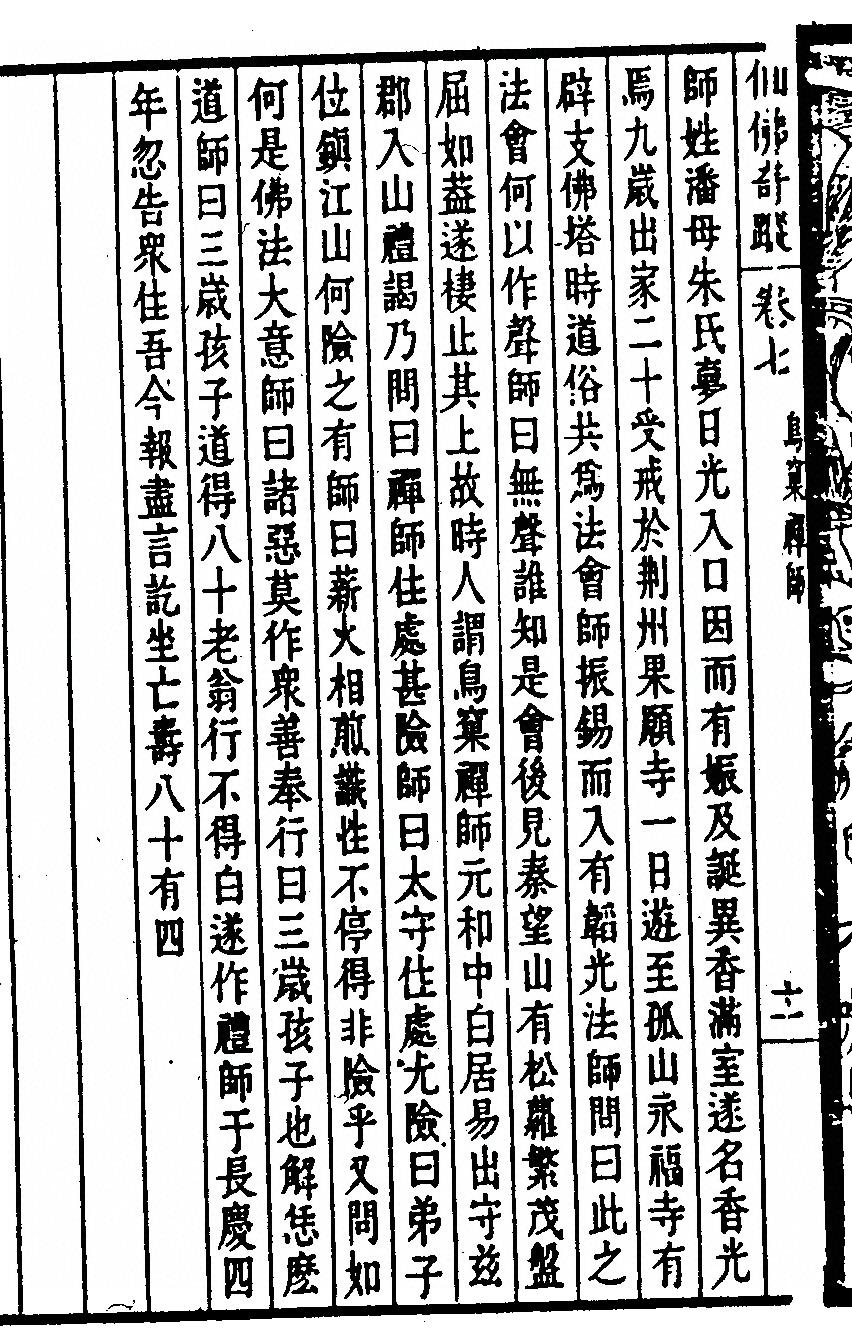 仙佛奇蹤 卷七 鳥窠禪師 十二
師姓潘母朱氏夢日光入口因而有娠及誕異香滿室遂名香光
焉九嵗出家二十受戒於荆州果願寺一日遊至孤山永福寺有
辟支佛塔時道俗共爲法會師振錫而入有韜光法師問曰此之
法會何以作聲師曰無聲誰知是會後見秦望山有松蘿繁茂盤
屈如葢遂棲止其上故時人謂鳥窠禪師元和中白居易出守兹
郡入山禮謁乃問曰禪師住處甚險師曰太守住處尤險曰弟子
位鎮江山何險之有師曰薪火相煎識性不停得非險乎又問如
何是佛法大意師曰諸惡莫作衆善奉行曰三嵗孩子也解恁麽
道師曰三嵗孩子道得八十老翁行不得白遂作禮師于長慶四
年忽告衆住吾今報盡言訖坐亡壽八十有四